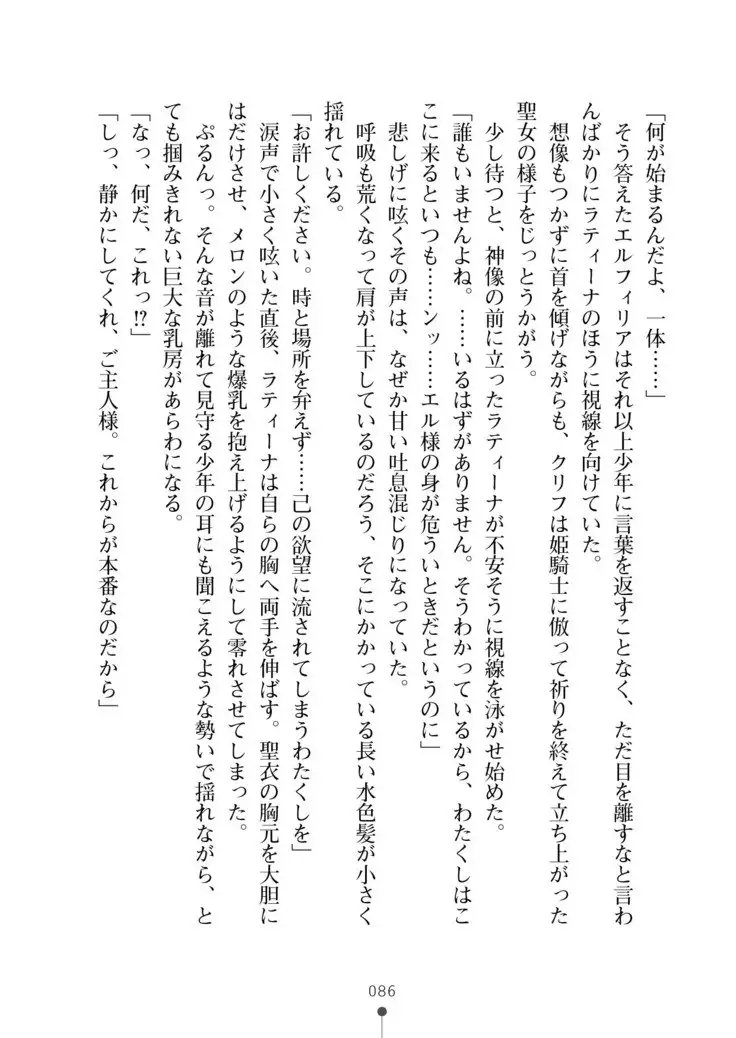 「何が始まるんだよ、一体……」
そう答えたエルフィリアはそれ以上少年に言葉を返すことなく、ただ目を離すなと言わ
んばかりにラティーナのほうに視線を向けていた。
想像もつかずに首を傾げながらも、クリフは姫騎士に倣って祈りを終えて立ち上がった
聖女の様子をじっとうかがう。
少し待つと、神像の前に立ったラティーナが不安そうに視線を泳がせ始めた。
「誰もいませんよね。……いるはずがありません。そうわかっているから、わたくしはこ
こに来るといつも……ンッ……エル様の身が危ういときだというのに」
悲しげに呟くその声は、なぜか甘い吐息混じりになっていた。
呼吸も荒くなって肩が上下しているのだろう、そこにかかっている長い水色髪が小さく
揺れている。
「お許しください。時と場所を弁えず……己の欲望に流されてしまうわたくしを」
涙声で小さく呟いた直後、ラティーナは自らの胸へ両手を伸ばす。聖衣の胸元を大胆に
はだけさせ、メロンのような爆乳を抱え上げるようにして零れさせてしまった。
ぷるんっ。そんな音が離れて見守る少年の耳にも聞こえるような勢いで揺れながら、と
ても掴みきれない巨大な乳房があらわになる。
「なっ、何だ、これっ!?」
「しっ、静かにしてくれ、ご主人様。これからが本番なのだから」
086